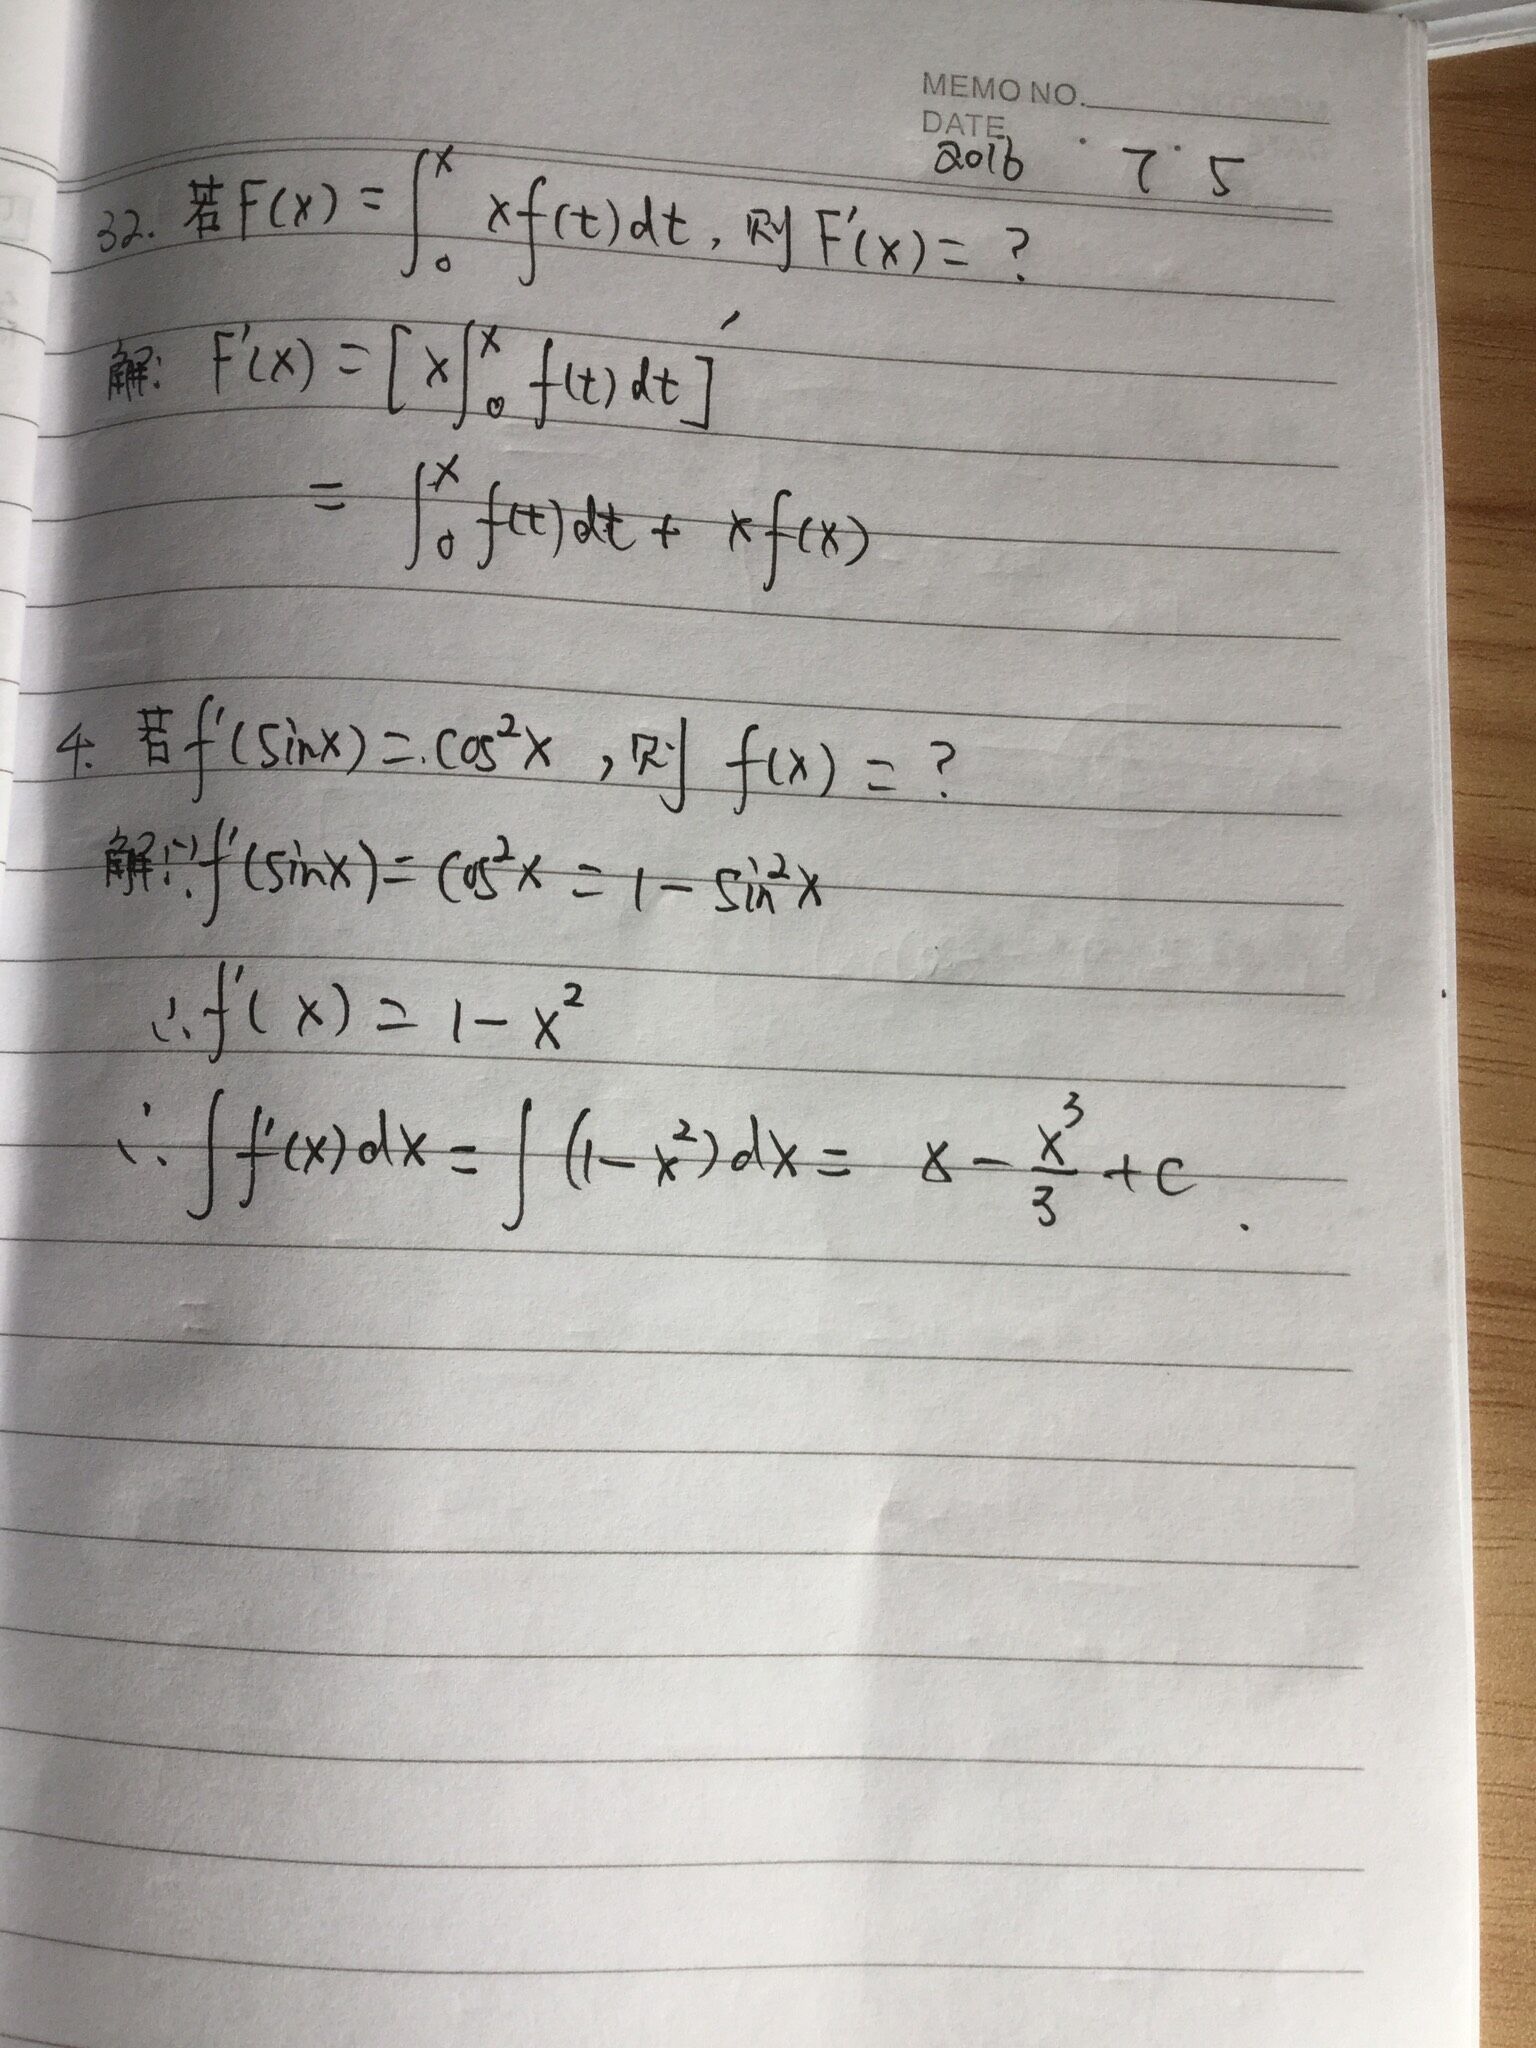 MEMO NO.
DATE
2016 · 7 · 5
32. 若F(x) = ∫₀ˣ xf(t)dt, 则F'(x) = ?
解: F'(x) = [x∫₀ˣ f(t)dt]'
= ∫₀ˣ f(t)dt + xf(x)
4. 若f'(sinx) = cos²x , 则 f(x) = ?
解: ∵f'(sinx) = cos²x = 1 - sin²x
∴f'(x) = 1 - x²
∴ ∫f'(x)dx = ∫(1 - x²)dx = x - x³/3 + c .